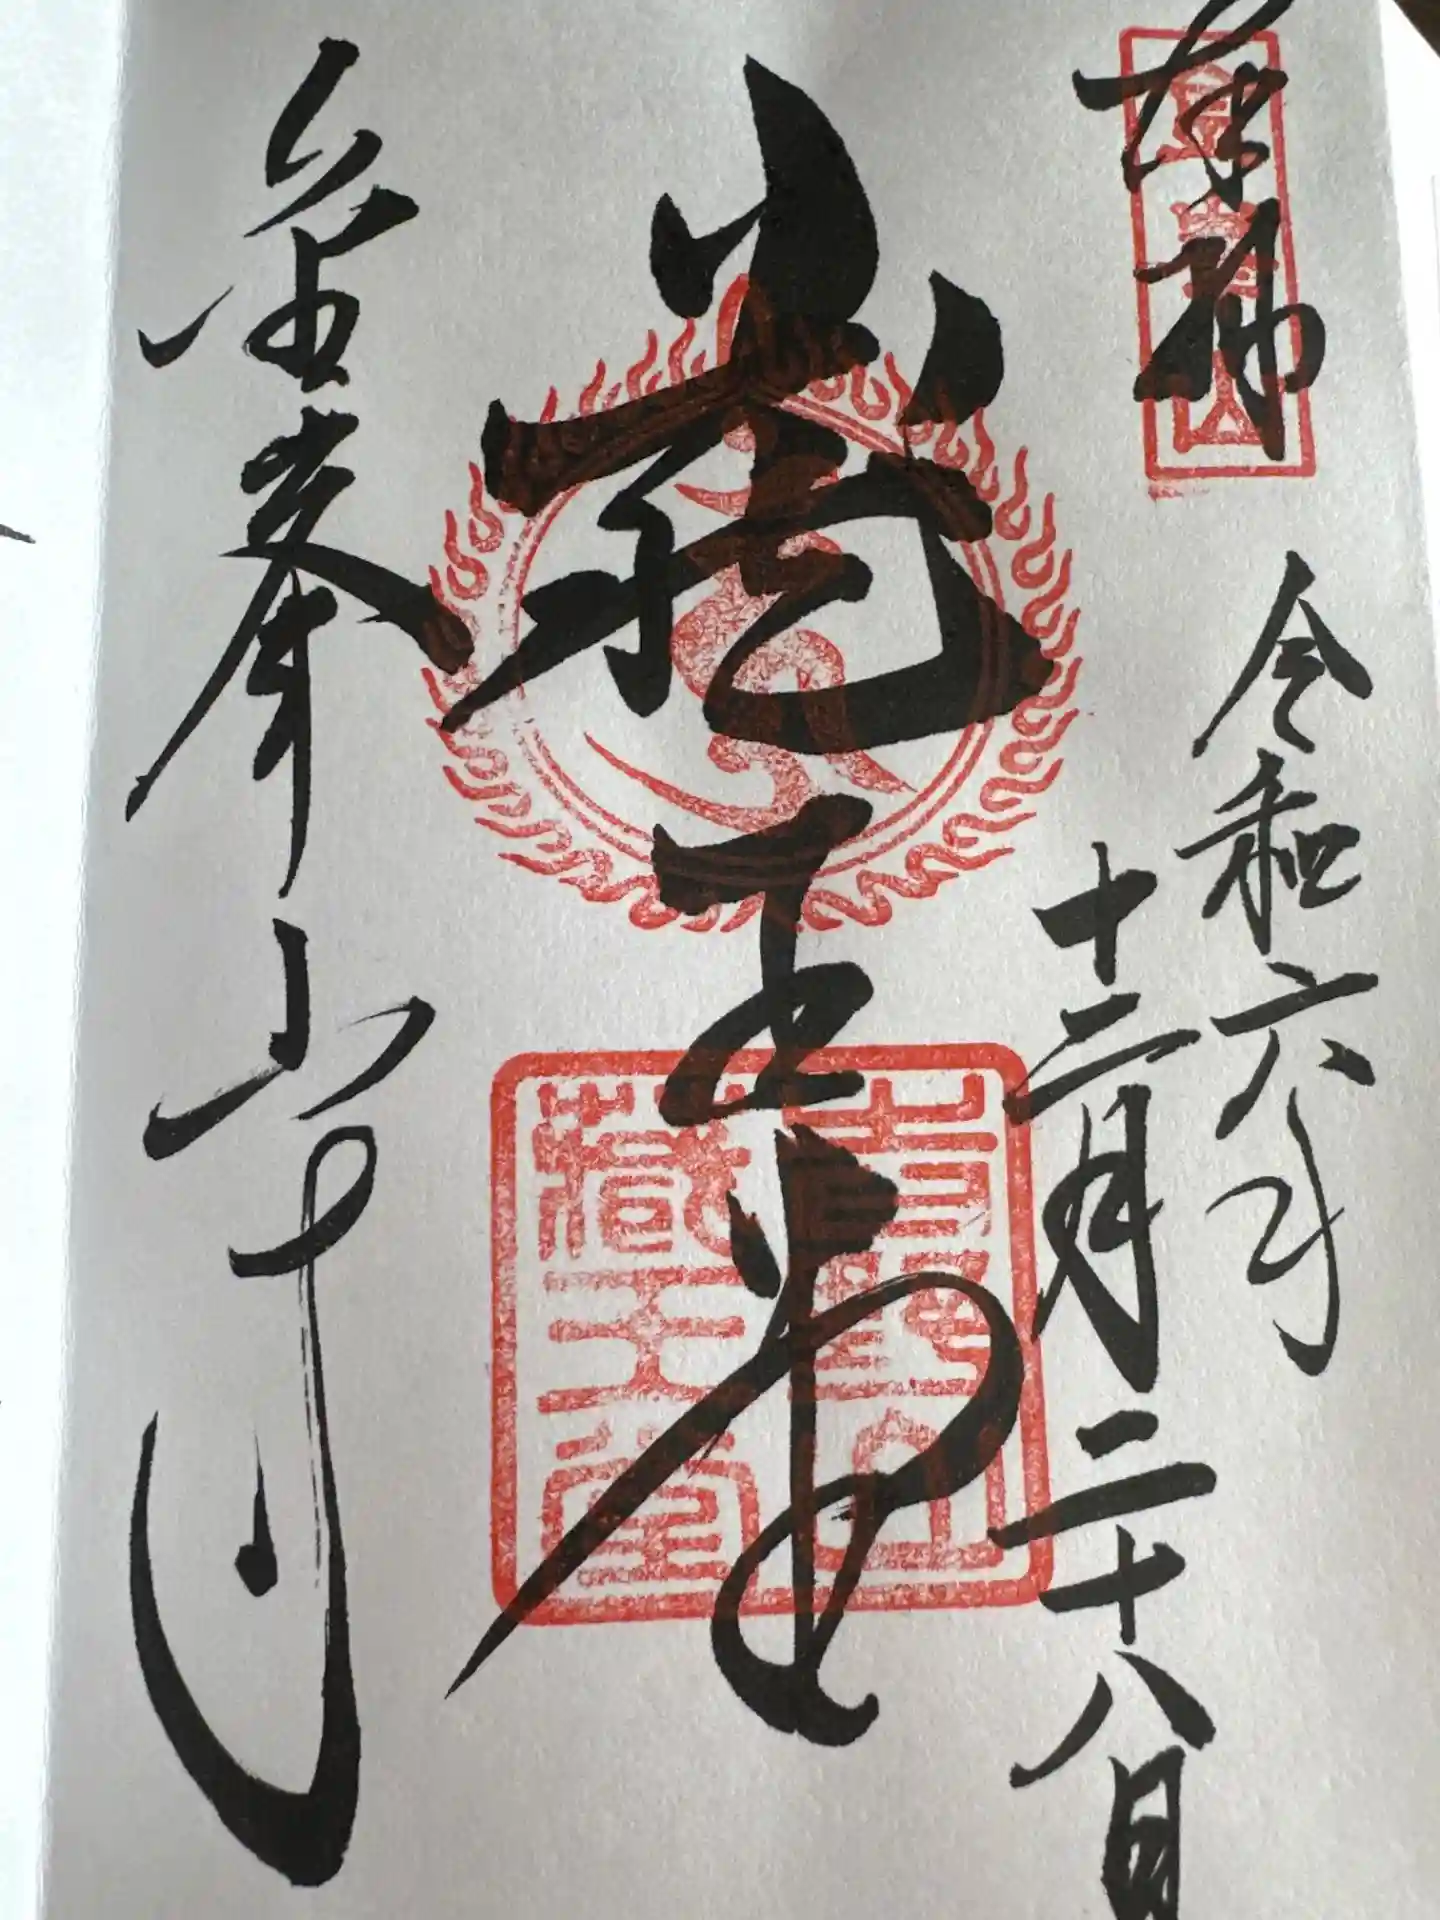 奉拝
令和六年
十二月二十八日
蔵王堂
吉野山
蔵王堂
金峯山寺